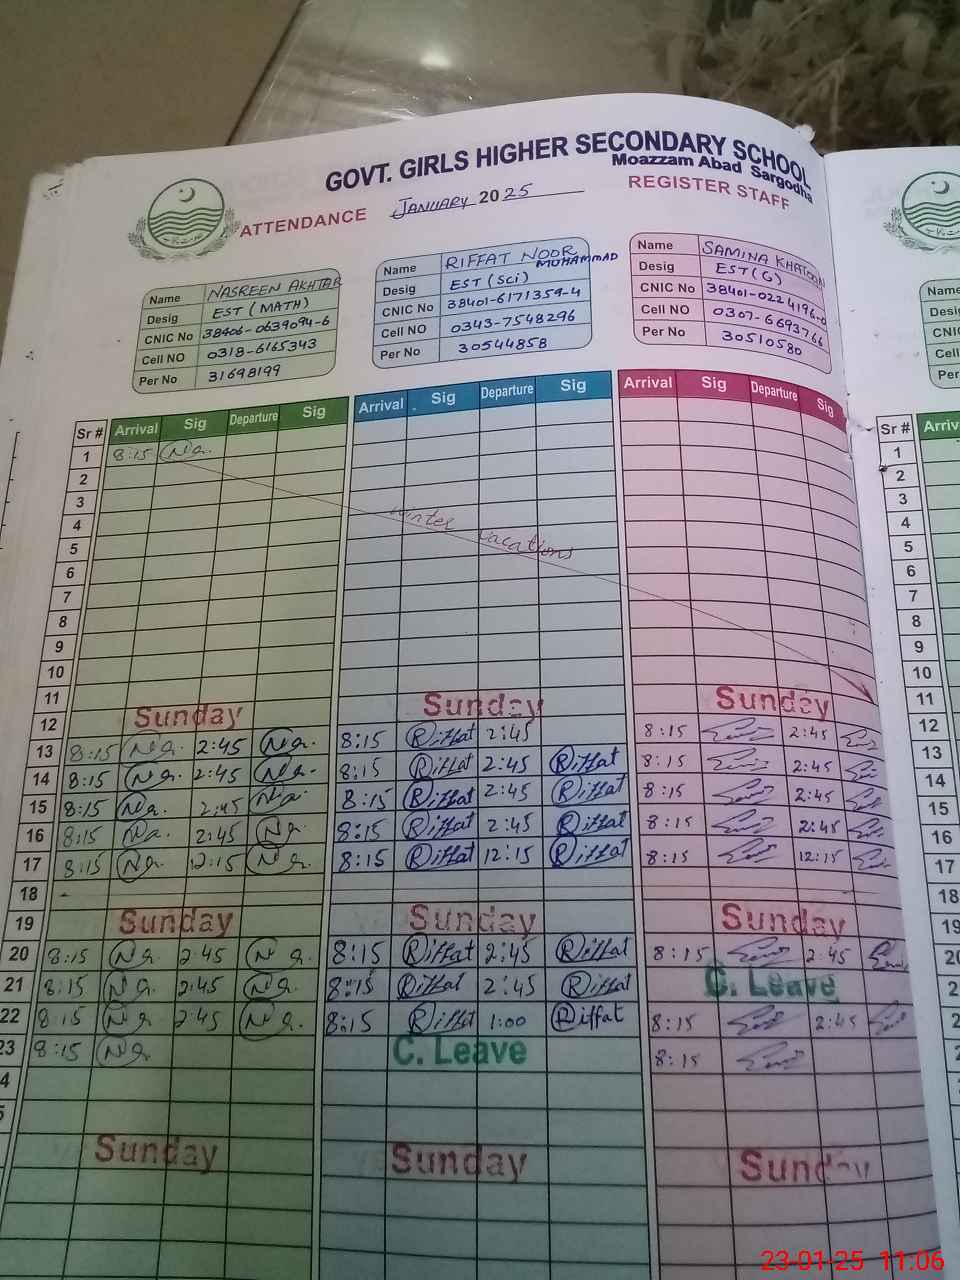 GOVT. GIRLS HIGHER SECONDARY SCHOOL
Moazzam Abad Sargodha
ATTENDANCE JANUARY 2025 REGISTER STAFF
Name NASREEN AKHTAR
Desig EST (MATH)
CNIC No 38406-0639094-6
Cell NO 0318-6165343
Per No 31698199
Name RIFFAT NOOR MUHAMMAD
Desig EST (Sci)
CNIC No 38401-6171359-4
Cell NO 0343-7548296
Per No 30544858
Name SAMINA KHATOON
Desig EST (G)
CNIC No 38401-0224196-0
Cell NO 0307-6693766
Per No 30510580
Name
Desig
CNIC
Cell
Per
Sr # Arrival Sig Departure Sig Arrival Sig Departure Sig Arrival Sig Departure Sig Sr #
1 8:15 Na. 1
2 2
3 3
4 winter vacations 4
5 5
6 6
7 7
8 8
9 9
10 10
11 11
12 Sunday Sunday Sunday 12
13 8:15 Na. 2:45 Na. 8:15 Riffat 2:45 8:15 2:45 13
14 8:15 Na. 2:45 Na. 8:15 Riffat 2:45 Riffat 8:15 2:45 14
15 8:15 Na. 2:45 Na. 8:15 Riffat 2:45 Riffat 8:15 2:45 15
16 8:15 Na. 2:45 Na. 8:15 Riffat 2:45 Riffat 8:15 2:45 16
17 8:15 Na. 12:15 Na. 8:15 Riffat 12:15 Riffat 8:15 12:15 17
18 18
19 Sunday Sunday Sunday 19
20 8:15 Na. 2:45 Na. 8:15 Riffat 2:45 Riffat 8:15 2:45
21 8:15 Na. 2:45 Na. 8:15 Riffat 2:45 Riffat C. Leave
22 8:15 Na. 2:45 Na. 8:15 Riffat 1:00 Riffat 8:15 2:45
23 8:15 Na. C. Leave 8:15
4
5
Sunday Sunday Sunday
23-01-25 11:06